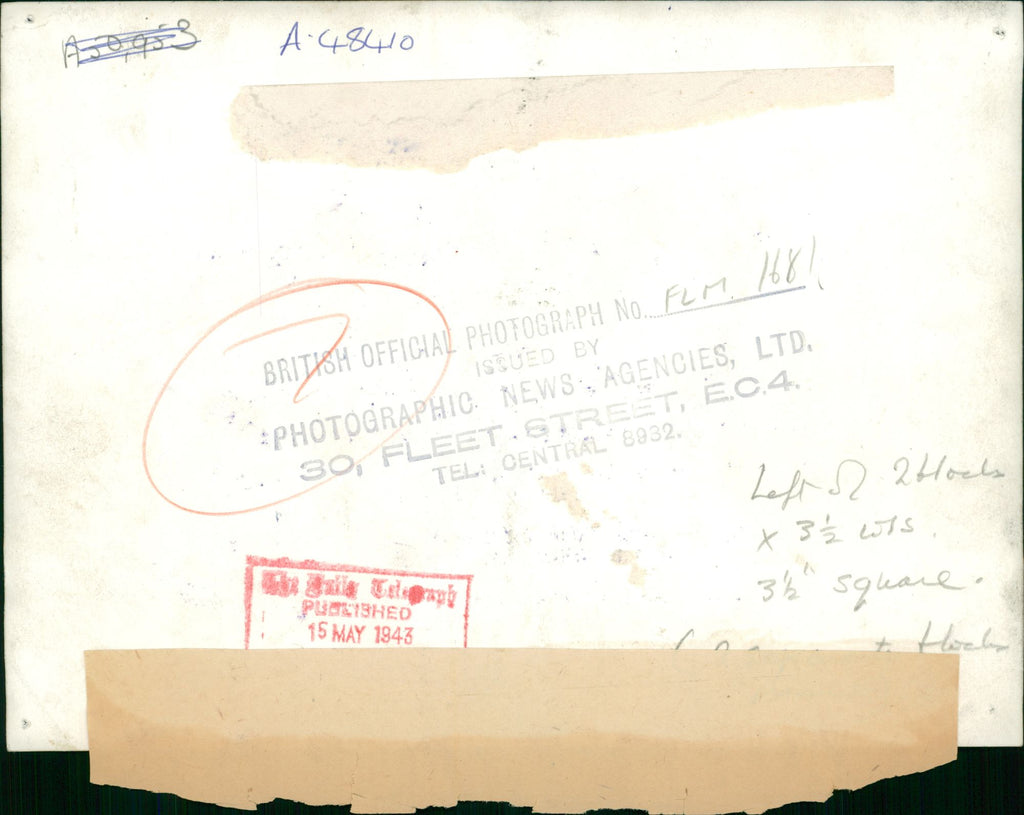 A50,953
A.48410
BRITISH OFFICIAL PHOTOGRAPH No. FLM. 1681
ISSUED BY
PHOTOGRAPHIC NEWS AGENCIES, LTD.
30, FLEET STREET, E.C.4.
TEL: CENTRAL 8932.
7
Left of 2 blocks
x 3½ wts.
3½" square.
The Daily Telegraph
PUBLISHED
15 MAY 1943
blocks